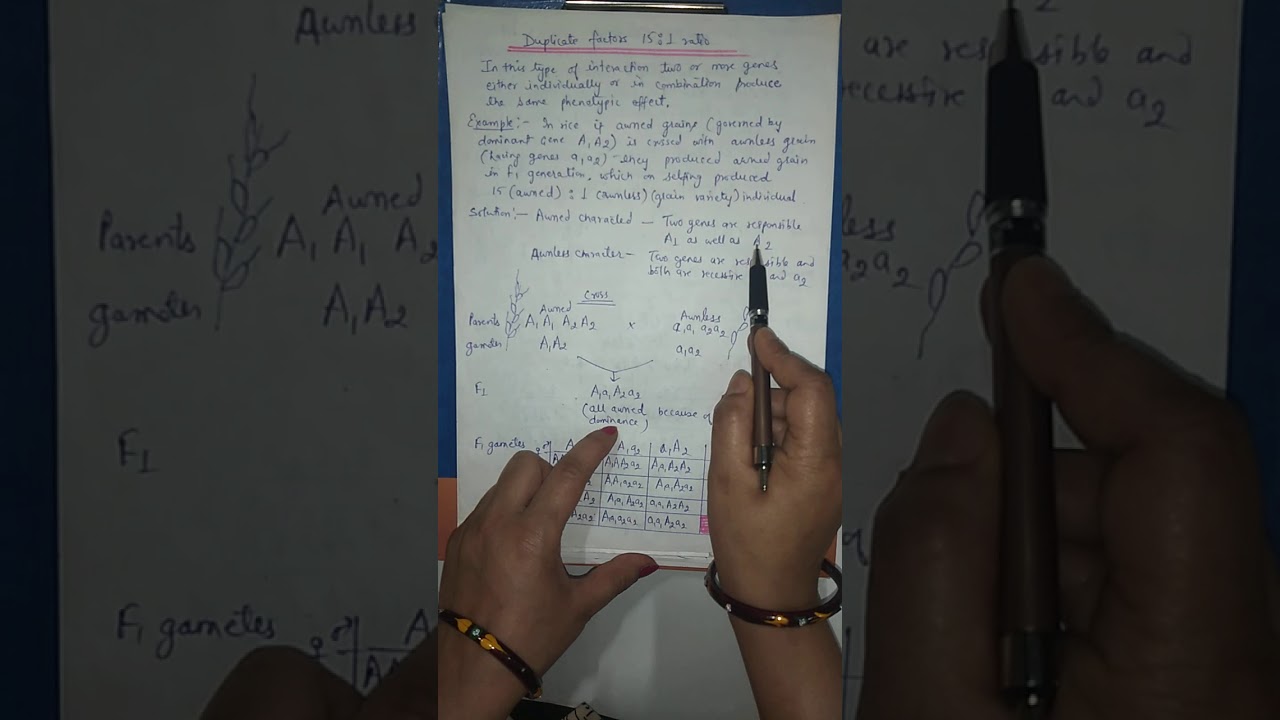 Duplicate factors 15:1 ratio
In this type of interaction two or more genes
either individually or in combination produce
the same phenotypic effect.
Example:- In rice if awned grains (governed by
dominant Gene A1 A2) is crossed with awnless grain
(having genes a1 a2) they produced awned grain
in F1 generation. which on selfing produced
15 (awned) : 1 (awnless) (grain variety) individual
Solution:- Awned characted — Two genes are responsible
A1 as well as A2
Awnless charcter — Two genes are and
both are recessive and a2
Cross
Awned Awnless
Parents A1 A1 A2 A2 x a1 a1 a2 a2
gametes A1 A2 a1 a2
F1 A1 a1 A2 a2
(all awned because
dominance)
F1 gametes ♀ ♂ A1 a2 a1 A2
A1A1A2a2 A1a1A2A2
A1A1a2a2 A1a1A2a2
A1a1A2a2 a1a1A2A2
A1a1a2a2 a1a1A2a2